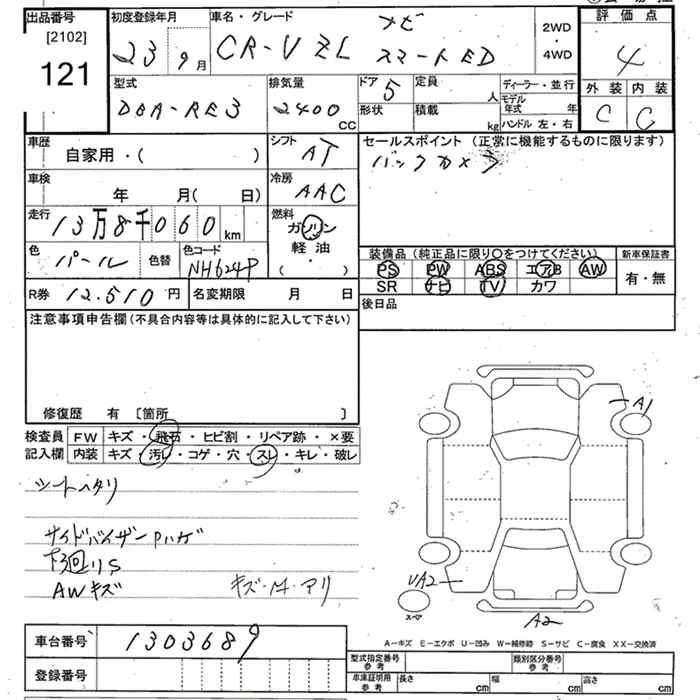 出品番号
[2102]
121
初度登録年月
23 9月
車名・グレード
ナビ
CR-V ZL スマートED
2WD
・
4WD
評価点
4
外装 内装
C C
型式
DBA-RE3
排気量
2400
CC
ドア 5
形状
定員
人
積載
kg
ディーラー・並行
モデル年式 年
ハンドル 左・右
車歴
自家用・( )
シフト
AT
車検
年 月(日)
冷房
AAC
走行
13万8千060km
燃料
ガソリン
軽油
( ・ )
色
パール
色替
色コード
NH624P
R券 12.510円
名変期限 月 日
セールスポイント (正常に機能するものに限ります)
バックカメラ
装備品 (純正品に限り○をつけてください)
PS PW ABS エアB AW
SR ナビ TV カワ
新車保証書
有・無
後日品
注意事項申告欄 (不具合内容等は具体的に記入して下さい)
修復歴 有 〔箇所 〕
検査員
記入欄
FW キズ・飛石・ヒビ割・リペア跡・×要
内装 キズ・汚レ・コゲ・穴・スレ・キレ・破レ
シートヘタリ
サイドバイザーPハゲ
下廻りS
AWキズ
A1
UA2
A2
スペア
A-キズ E-エクボ U-凹み W-補修跡 S-サビ C-腐食 XX-交換済
車台番号 1303689
登録番号
型式指定番号
参考
類別区分番号
参考
車庫証明用
参考
長さ cm 幅 cm 高さ cm